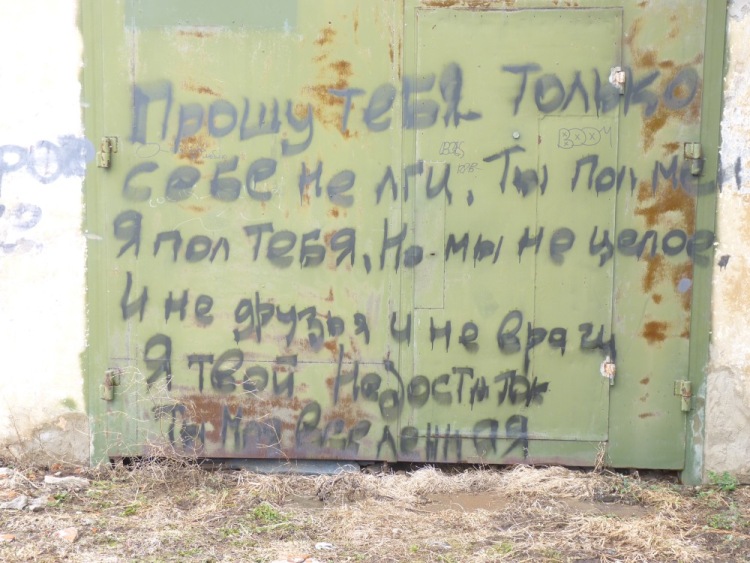 Прошу тебя только
себе не лги, Ты пол мен
Я пол тебя, Но мы не целое.
И не друзья и не враги
Я твой Недостаток
Ты Моя Вселенная
BOOY